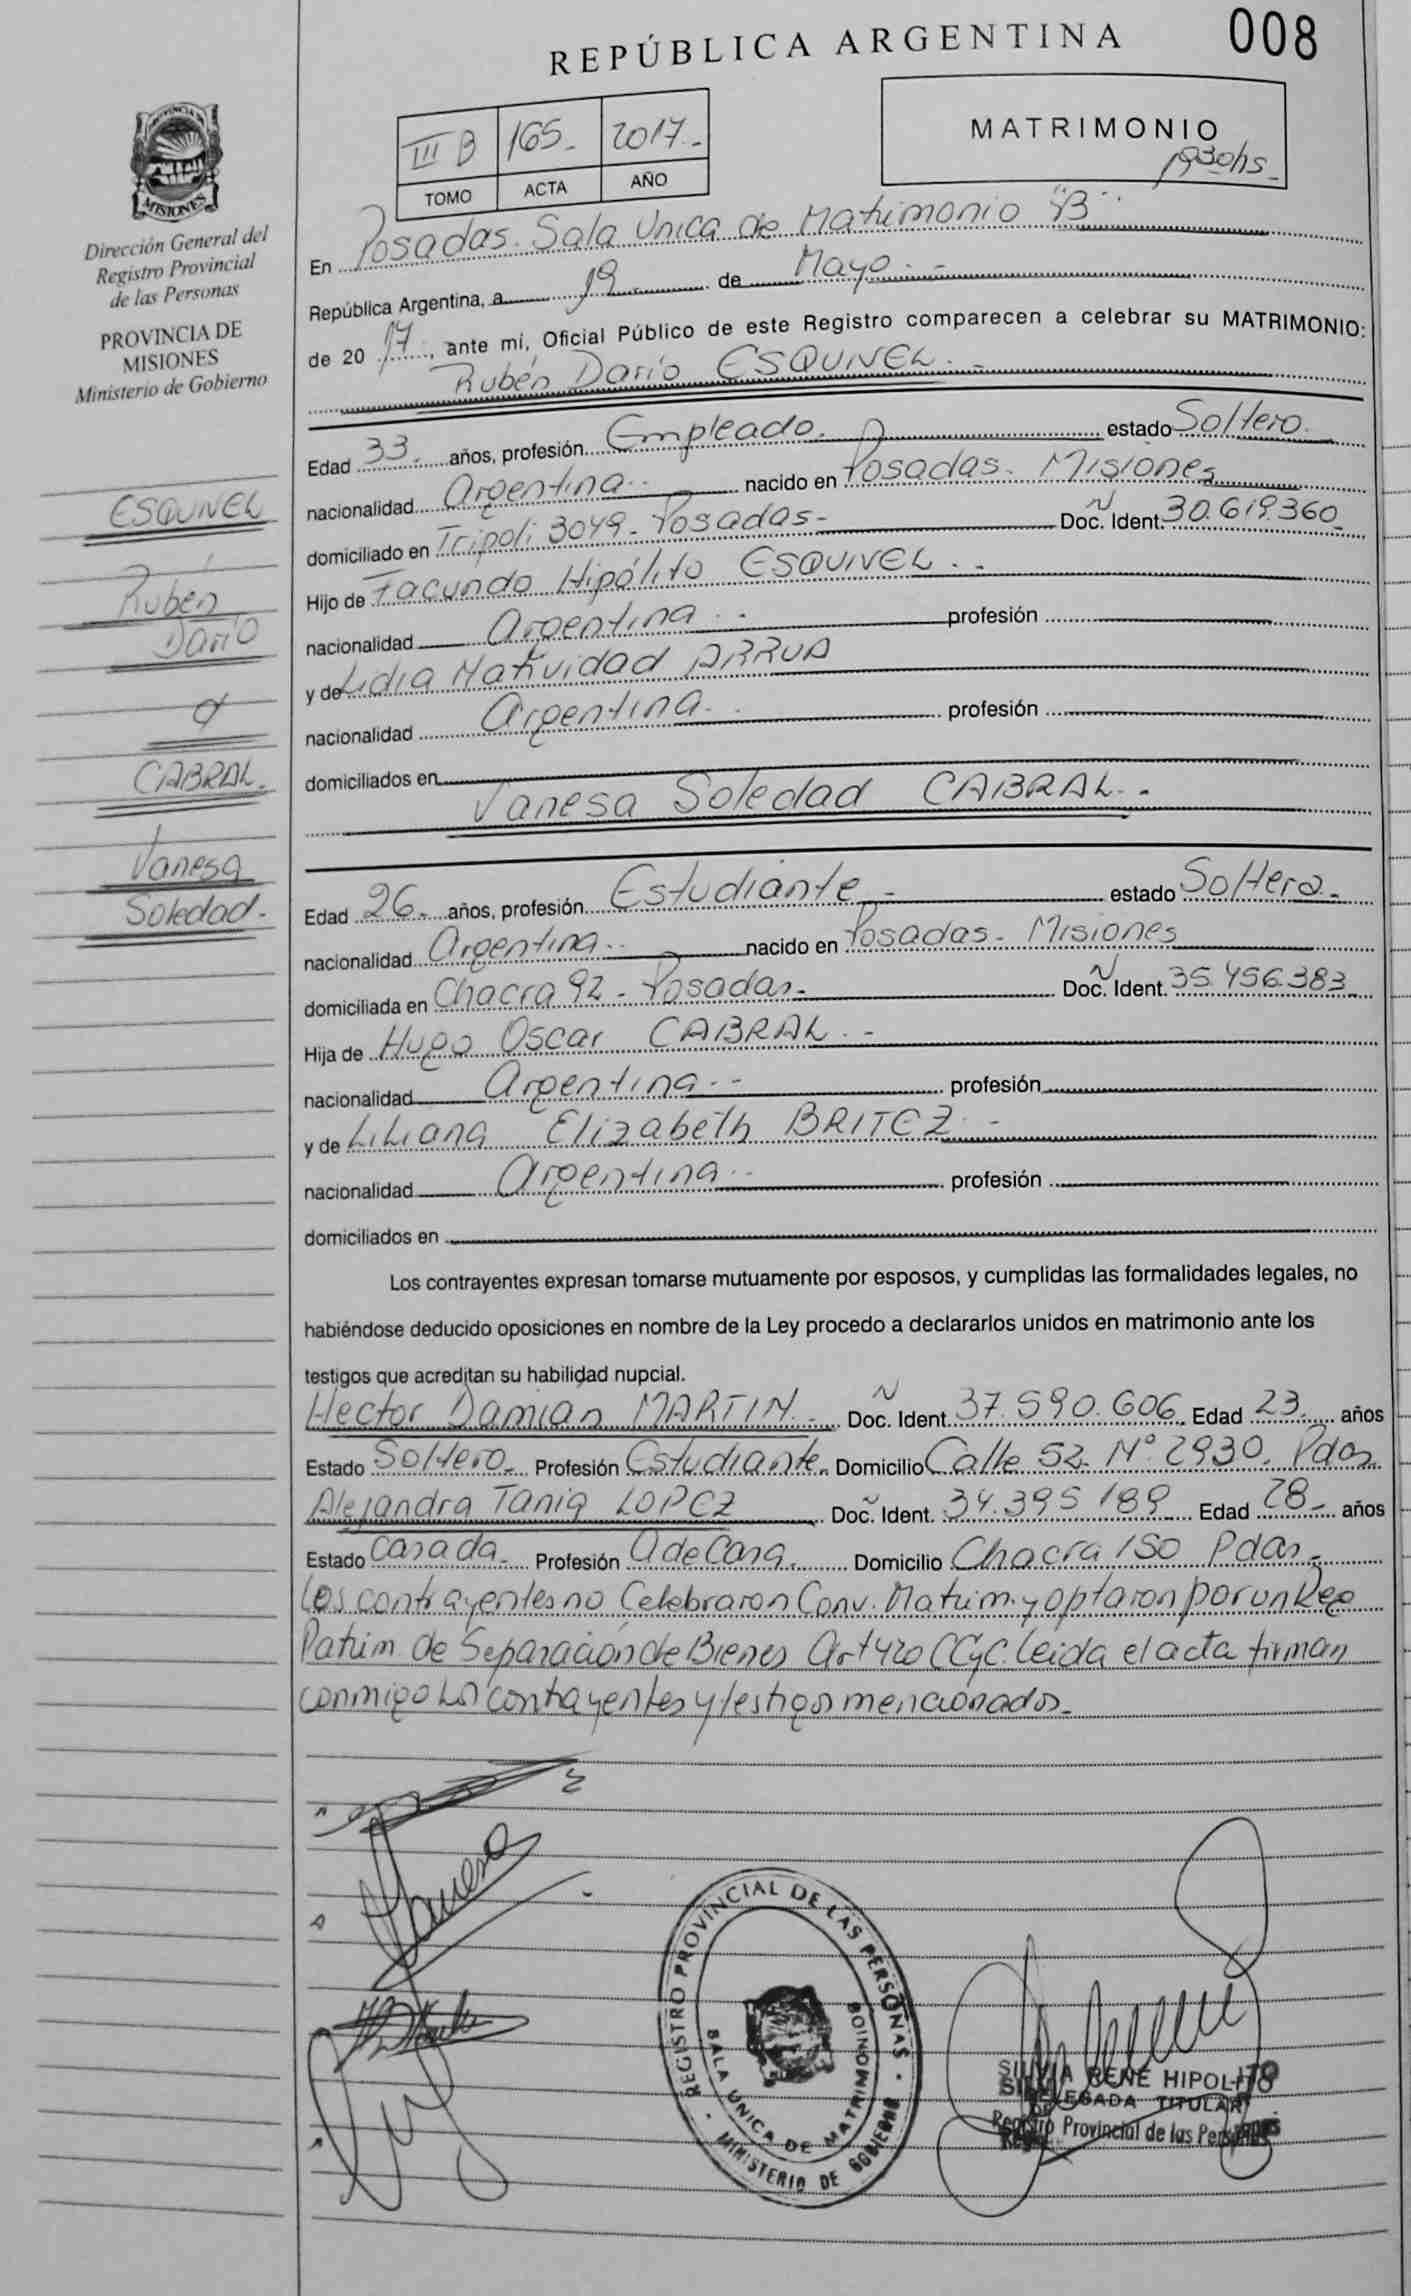 REPÚBLICA ARGENTINA
008
III B 165- 2017.-
TOMO ACTA AÑO
MATRIMONIO
1930hs-
MISIONES
Dirección General del
Registro Provincial
de las Personas
PROVINCIA DE
MISIONES
Ministerio de Gobierno
En Posadas. Sala Unica de Matrimonio "B"
República Argentina, a 19 de Mayo.-
de 20 17, ante mí, Oficial Público de este Registro comparecen a celebrar su MATRIMONIO:
Rubén Darío ESQUIVEL.-
Edad 33- años, profesión Empleado. estado Soltero.
nacionalidad Argentina.. nacido en Posadas- Misiones
domiciliado en Tripoli 3049- Posadas- Doc. Ident. 30.619.360
Hijo de Facundo Hipólito ESQUIVEL.-
nacionalidad Argentina.. profesión
y de Lidia Natividad ARRUA
nacionalidad Argentina.. profesión
domiciliados en
Vanesa Soledad CABRAL.-
Edad 26- años, profesión Estudiante- estado Soltera-
nacionalidad Argentina.. nacido en Posadas- Misiones
domiciliada en Chacra 92- Posadas- Doc. Ident. 35.456.383
Hija de Hugo Oscar CABRAL.-
nacionalidad Argentina.- profesión
y de Liliana Elizabeth BRITEZ.-
nacionalidad Argentina.. profesión
domiciliados en
ESQUIVEL
Rubén
Darío
CABRAL-
Vanesa
Soledad-
Los contrayentes expresan tomarse mutuamente por esposos, y cumplidas las formalidades legales, no
habiéndose deducido oposiciones en nombre de la Ley procedo a declararlos unidos en matrimonio ante los
testigos que acreditan su habilidad nupcial.
Hector Damian MARTIN.- Doc. Ident. 37.590.606 Edad 23- años
Estado Soltero- Profesión Estudiante. Domicilio Calle 52- N° 2930. Pdas
Alejandra Tania LOPEZ Doc. Ident. 34.395.189 Edad 28- años
Estado Casada- Profesión A de Casa. Domicilio Chacra 150 Pdas-
Los contrayentes no Celebraron Conv. Matrim. y optaron por un Reg
Patrim de Separación de Bienes Art 420 CCyC. Leida el acta firman
conmigo los contrayentes y testigos mencionados-
Vanesa
REGISTRO PROVINCIAL DE LAS PERSONAS
SALA UNICA DE MATRIMONIOS
MINISTERIO DE GOBIERNO
SILVIA RENE HIPOLITO
DELEGADA TITULAR
Registro Provincial de las Personas